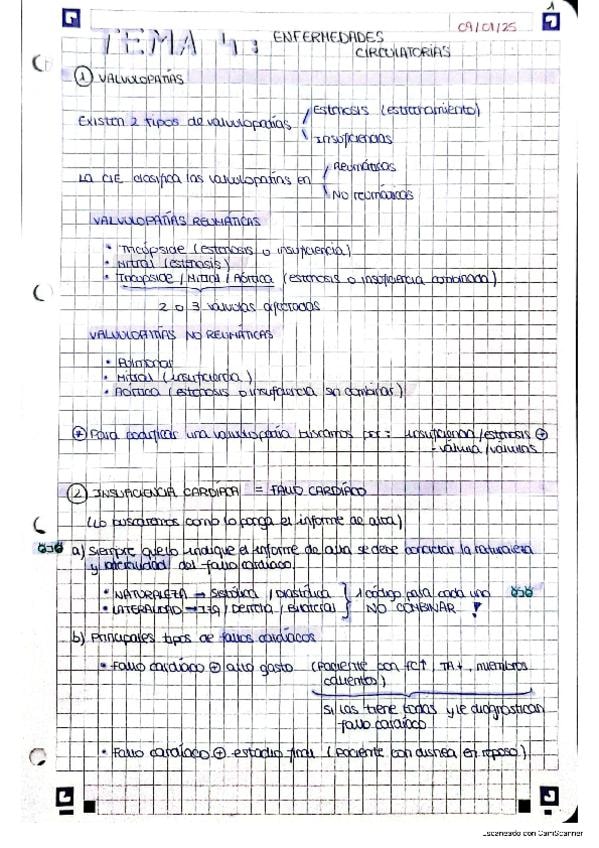 1
09/01/25
TEMA 4: ENFERMEDADES
CIRCULATORIAS
① VALVULOPATÍAS
Existen 2 tipos de valvulopatías
Estenosis (estrechamiento)
Insuficiencias
La CIE clasifica las valvulopatías en
Reumáticas
No reumáticas
VALVULOPATÍAS REUMÁTICAS
• Tricúspide (estenosis o insuficiencia)
• Mitral (estenosis)
• Tricúspide / Mitral / Aórtica (estenosis o insuficiencia combinada)
2 o 3 válvulas afectadas
VALVULOPATÍAS NO REUMÁTICAS
• Pulmonar
• Mitral (insuficiencia)
• Aórtica (estenosis o insuficiencia sin combinar)
Para codificar una valvulopatía buscamos por: insuficiencia/estenosis ⊕
- válvula/válvulas
② INSUFICIENCIA CARDÍACA = FALLO CARDÍACO
(Lo buscaremos como lo ponga el informe de alta)
a) Siempre que lo indique el informe de alta se debe la naturaleza
y lateralidad del fallo cardíaco
• NATURALEZA → Sistólica / Diastólica } 1 código para cada uno
• LATERALIDAD → IZQ / Derecha / NO COMBINAR !
b) Principales tipos de fallos cardíacos
• Fallo cardíaco ⊕ alto gasto (Paciente con FC↑, TA↓, miembros
calientes)
Si las tiene todas y le diagnostican
fallo cardíaco
• Fallo cardíaco ⊕ estadio final (Paciente con disnea en reposo)
Escaneado con CamScanner